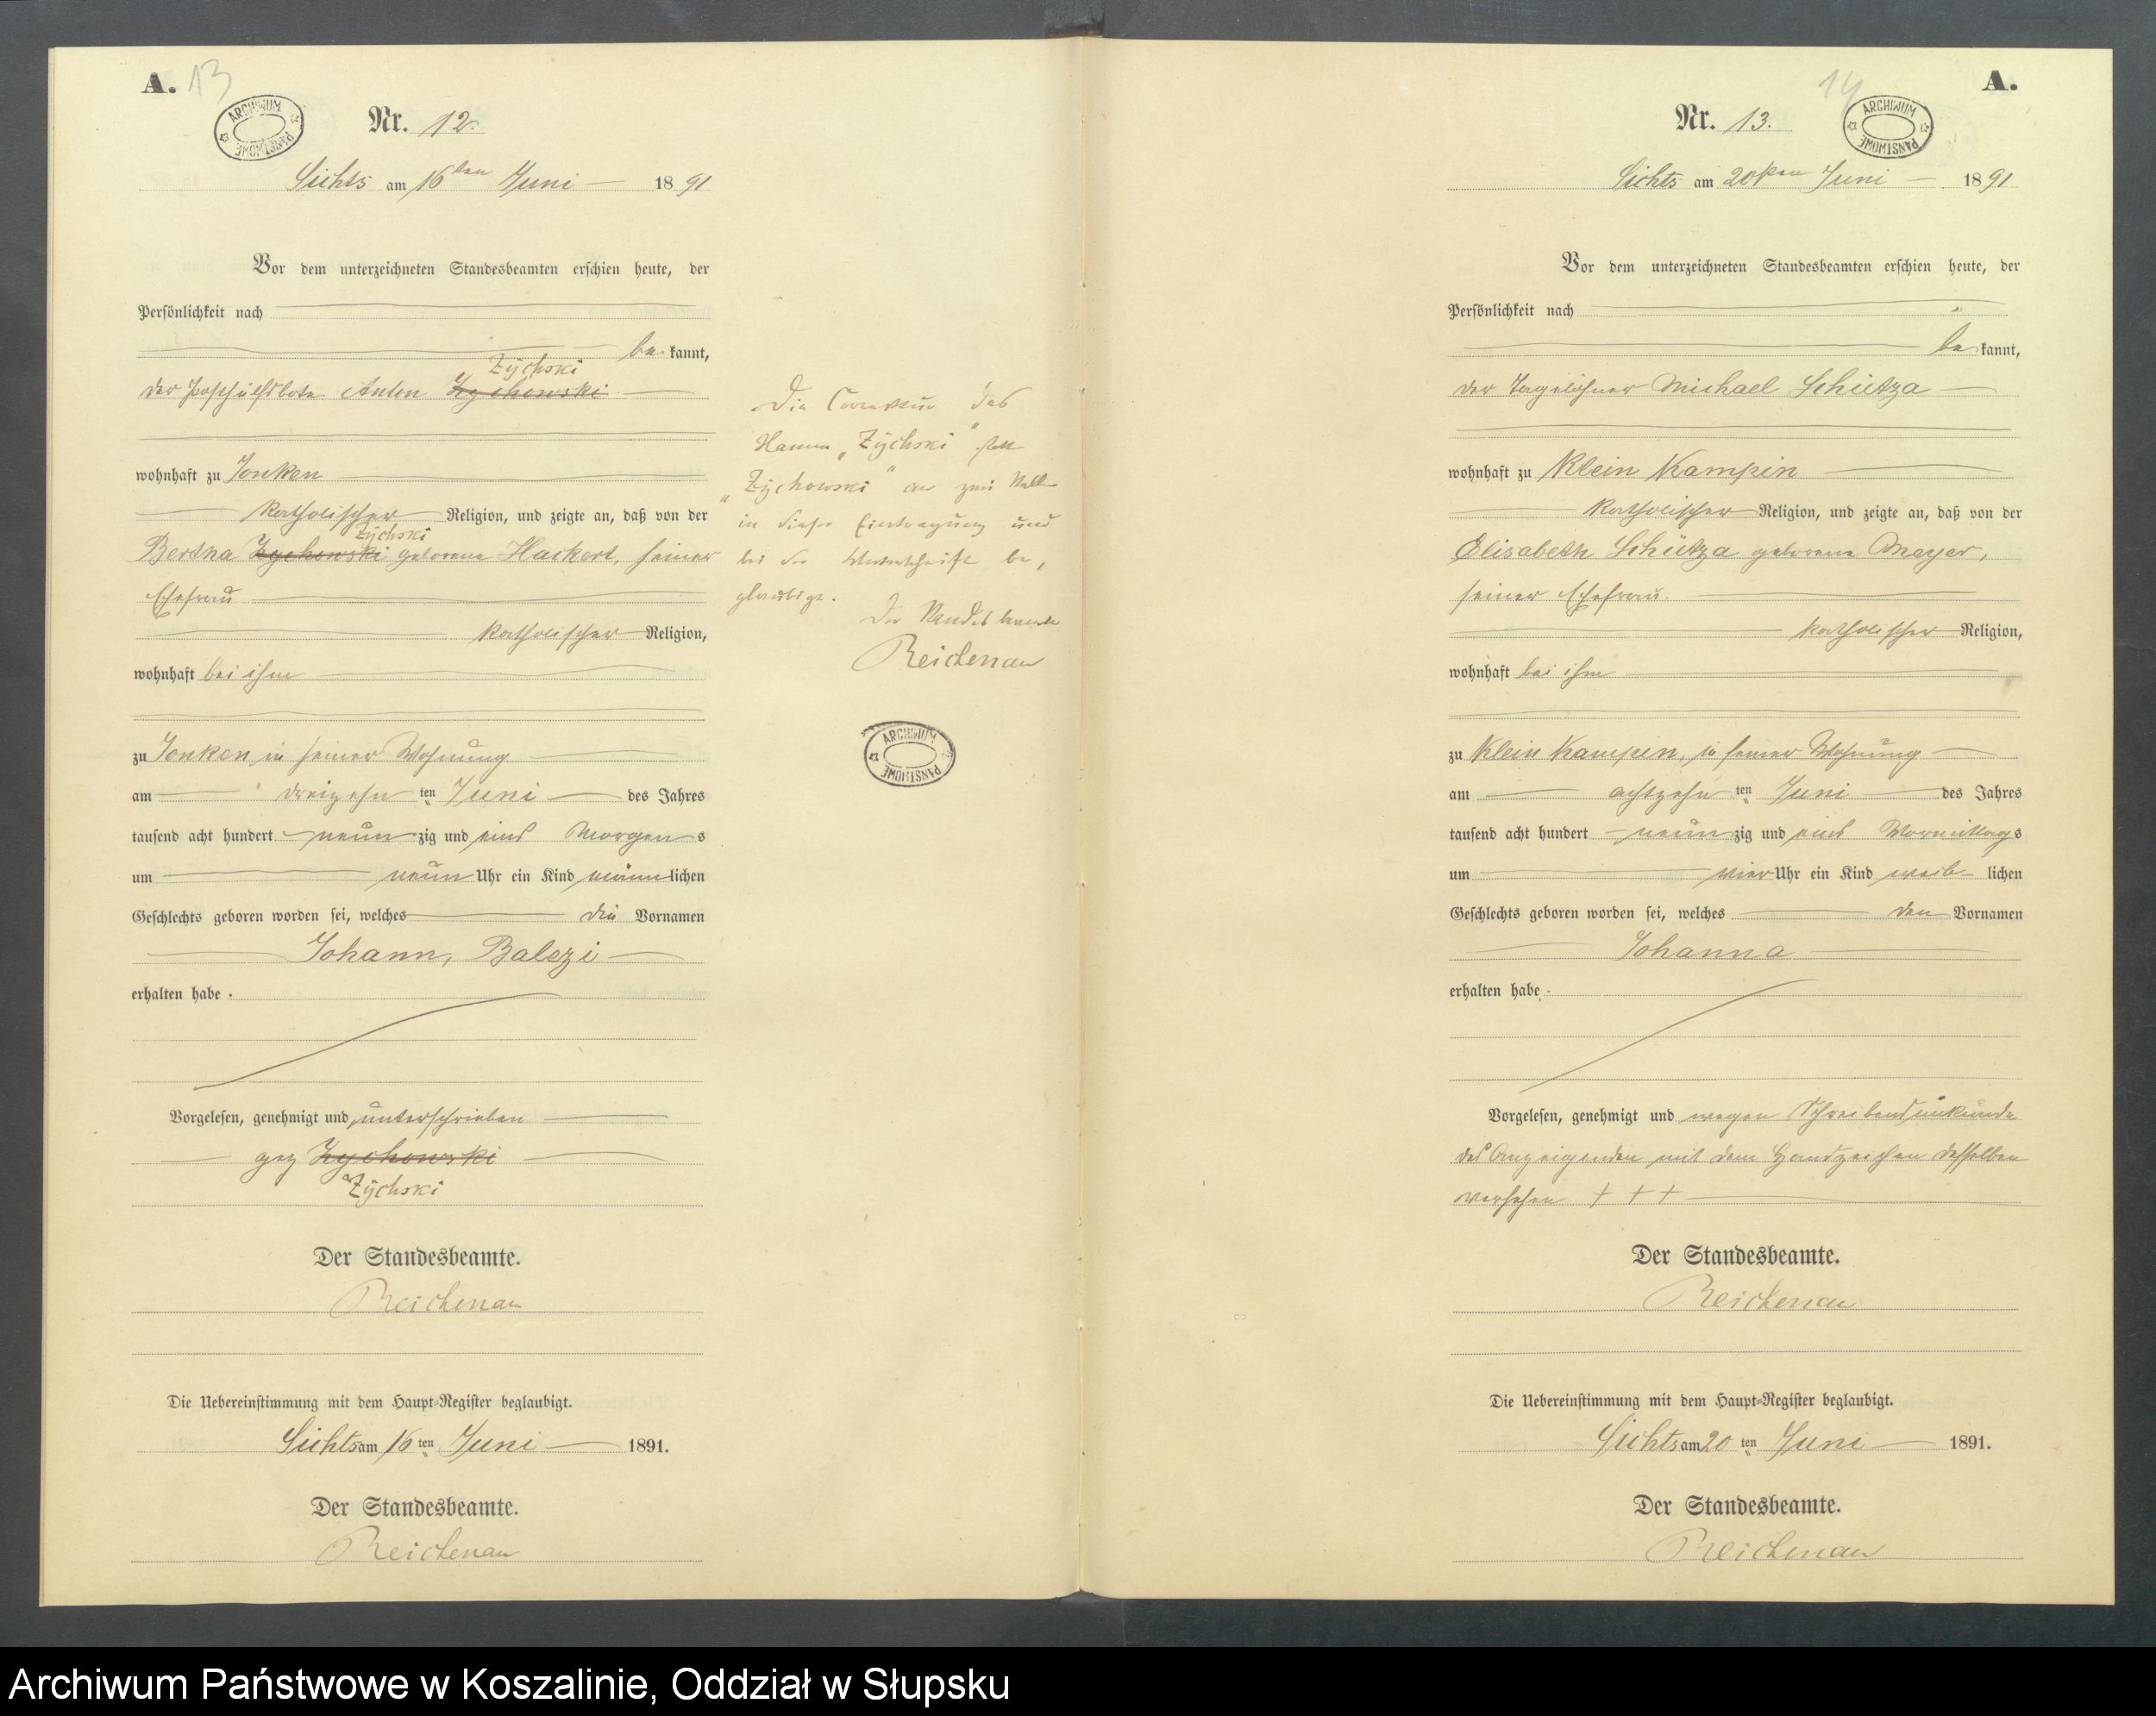 A. 13
ARCHIWUM PAŃSTWOWE
Nr. 12.
Lichts am 16ten Juni 1891
Vor dem unterzeichneten Standesbeamten erschien heute, der
Persönlichkeit nach
bekannt,
Zychski
der Posthülfsbote Anton Zychowski
wohnhaft zu Jonken
katholischer Religion, und zeigte an, daß von der
Zychski
Bertha Zychowski geborene Hackert, seiner
Ehefrau
katholischer Religion,
wohnhaft bei ihm
zu Jonken in seiner Wohnung
am dreizehnten Juni des Jahres
tausend acht hundert neunzig und eins Morgens
um neun Uhr ein Kind männlichen
Geschlechts geboren worden sei, welches die Vornamen
Johann, Balezi
erhalten habe.
Vorgelesen, genehmigt und unterschrieben
gez Zychowski
Zychski
Der Standesbeamte.
Reichenau
Die Uebereinstimmung mit dem Haupt-Register beglaubigt.
Lichts am 16ten Juni 1891.
Der Standesbeamte.
Reichenau
Die Correktur des
Namen „Zychski" statt
„Zychowski" an zwei Stell
in dieser Eintragung und
bei der Unterschrift be,
glaubigt.
Der Standesbeamte
Reichenau
ARCHIWUM PAŃSTWOWE
14 A.
ARCHIWUM PAŃSTWOWE
Nr. 13.
Lichts am 20ten Juni 1891
Vor dem unterzeichneten Standesbeamten erschien heute, der
Persönlichkeit nach
bekannt,
der Tagelöhner Michael Schütza
wohnhaft zu Klein Kampin
katholischer Religion, und zeigte an, daß von der
Elisabeth Schütza geborene Meyer,
seiner Ehefrau.
katholischer Religion,
wohnhaft bei ihm
zu Klein Kampin, in seiner Wohnung
am achtzehnten Juni des Jahres
tausend acht hundert neunzig und eins Vormittags
um vier Uhr ein Kind weiblichen
Geschlechts geboren worden sei, welches den Vornamen
Johanna
erhalten habe.
Vorgelesen, genehmigt und wegen Schreibensunkunde
des Anzeigenden mit dem Handzeichen desselben
versehen + + +
Der Standesbeamte.
Reichenau
Die Uebereinstimmung mit dem Haupt-Register beglaubigt.
Lichts am 20ten Juni 1891.
Der Standesbeamte.
Reichenau
Archiwum Państwowe w Koszalinie, Oddział w Słupsku